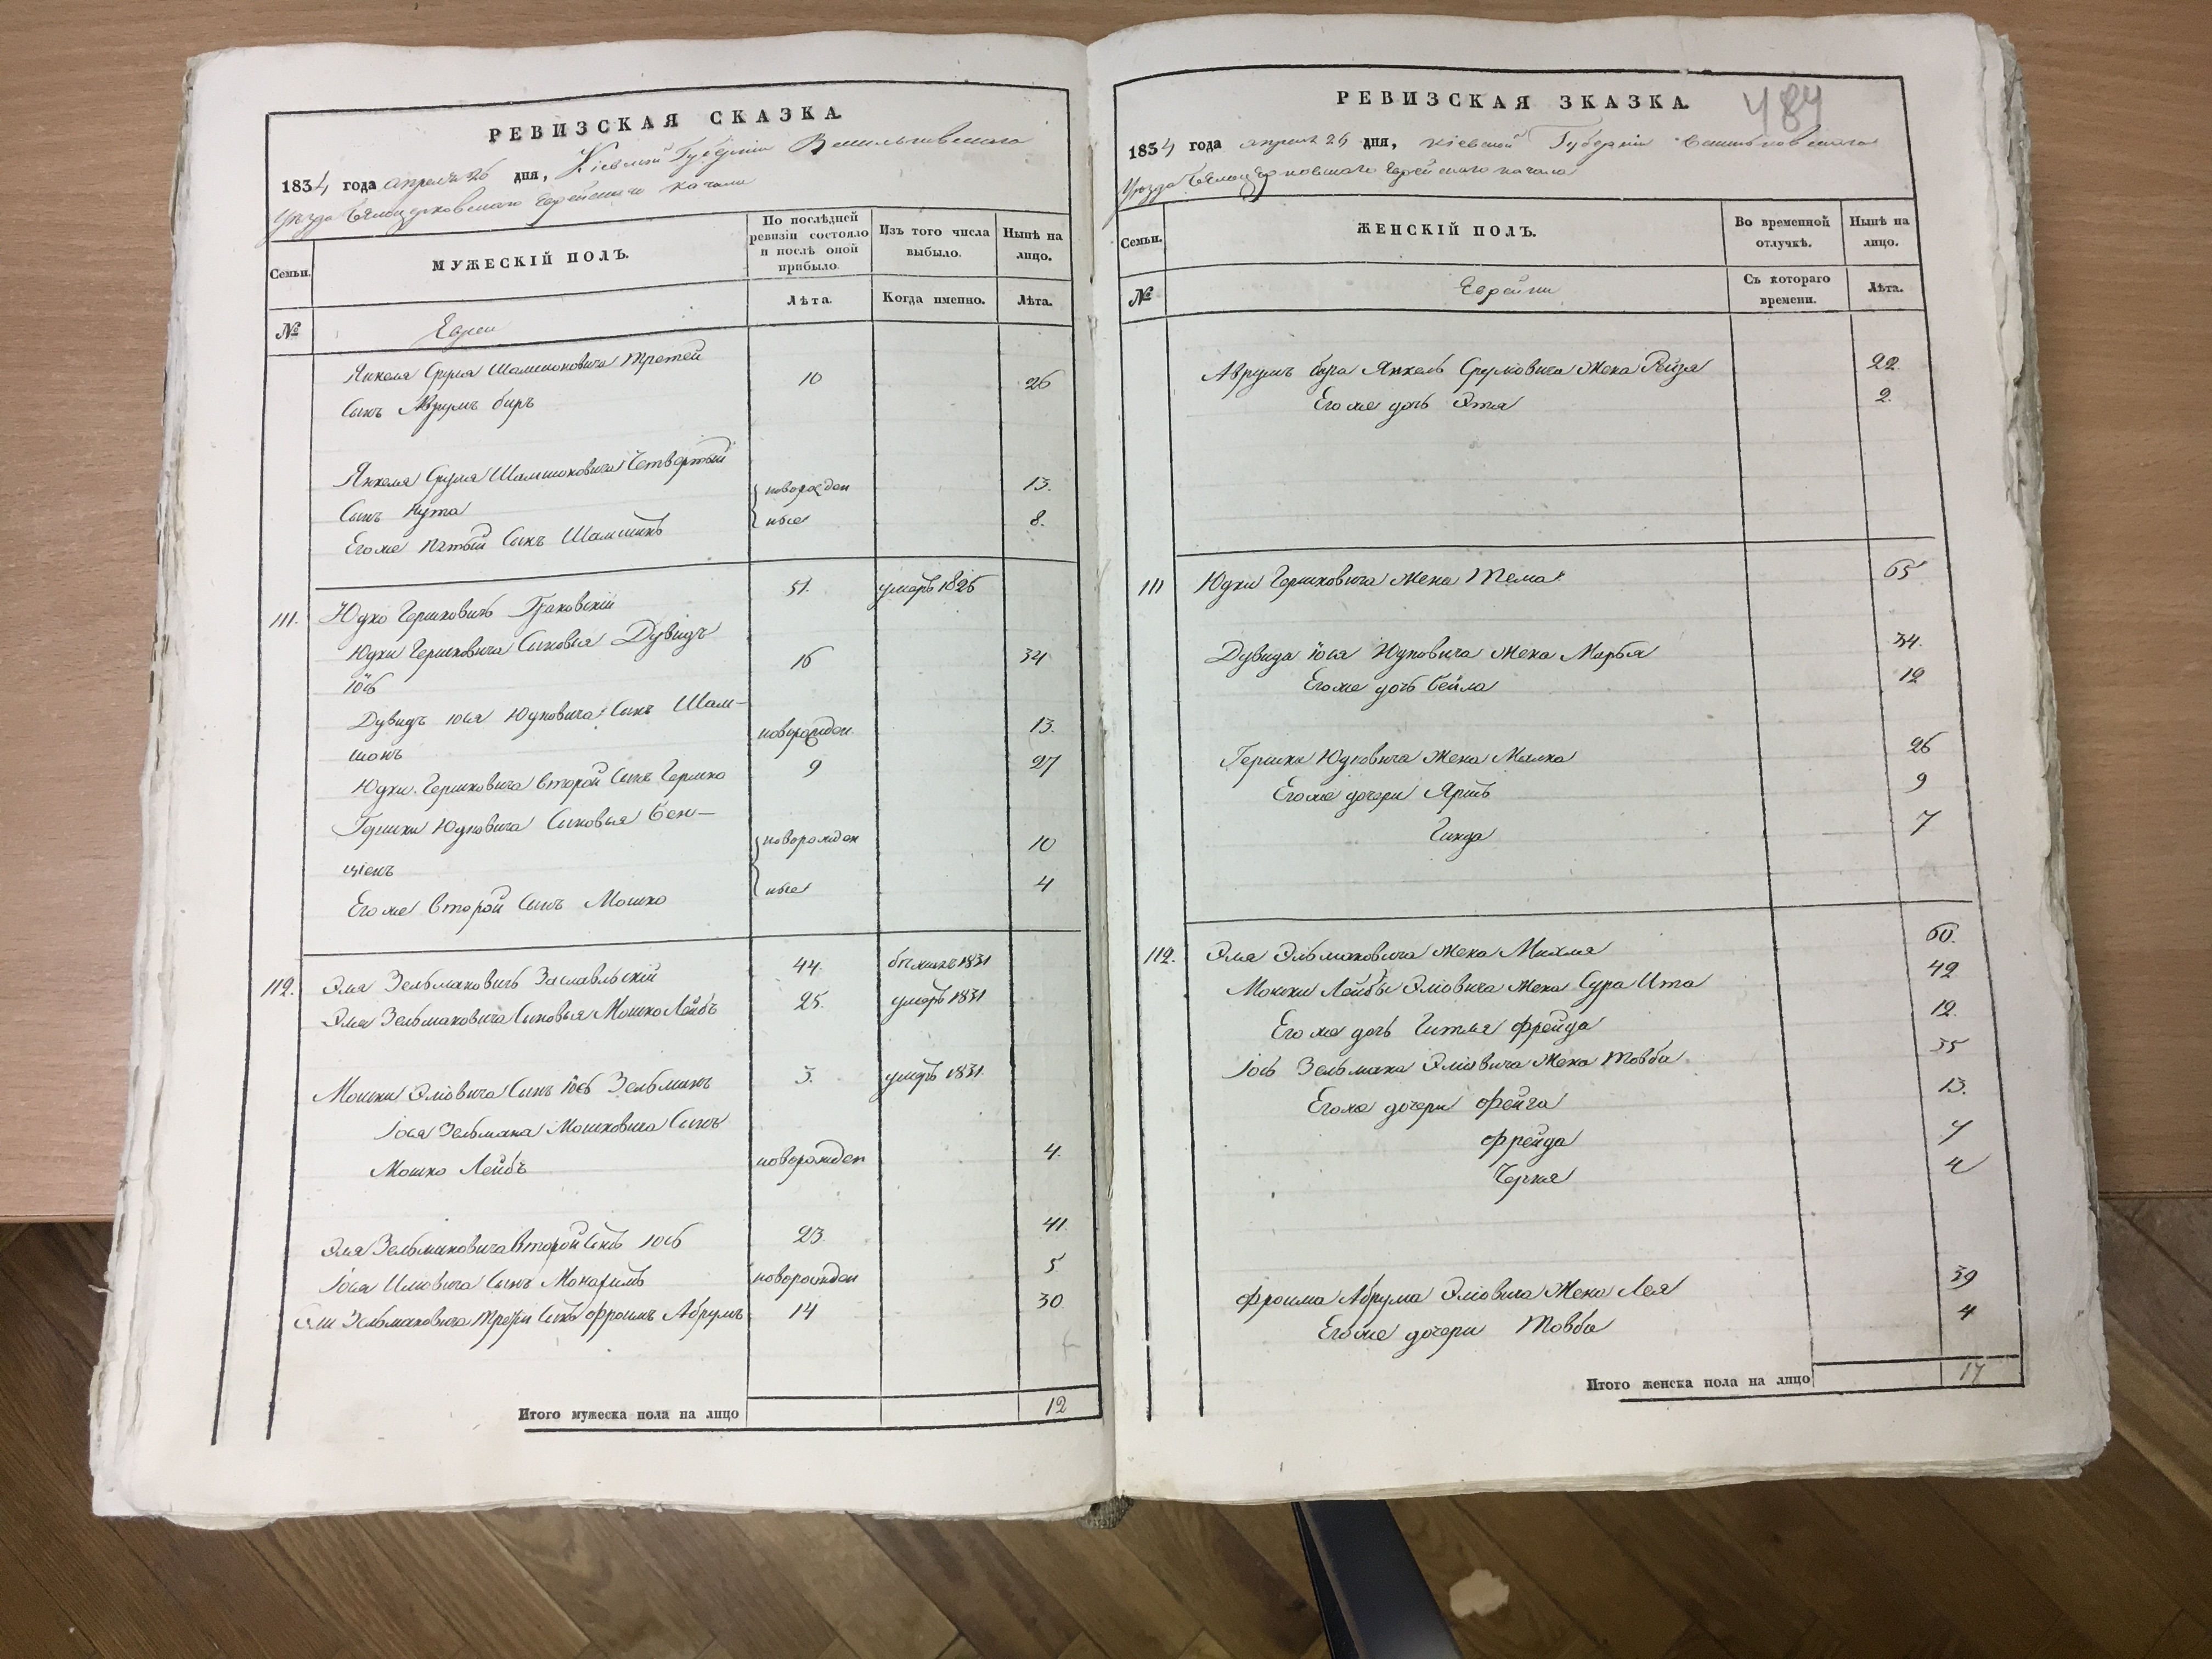 РЕВИЗСКАЯ СКАЗКА
1834 года апреля 26 дня, Кіевской Губерніи Васильковскаго
Уезда Белоцерковскаго Еврейскаго кагала
Семьи.
МУЖЕСКІЙ ПОЛЪ.
По послѣдней ревизіи состояло и послѣ оной прибыло.
Изъ того числа выбыло.
Нынѣ на лицо.
№
Евреи
Лѣта.
Когда именно.
Лѣта.
Янкеля Сруля Шамшоновича третей
10
26
Сынъ Аврумъ беръ
Янкеля Сруля Шамшоновича Четвертый
Сынъ Нута
новорожден
13.
Его же пятый Сынъ Шамшинъ
ные
8.
111. Юдко Гершковичь Граковскій
51.
умеръ 1826
Юдки Гершковича Сыновья Дувидъ
Іось
16
34
Дувидъ Іося Юдковича Сынъ Шам-
шонъ
новорожден.
13.
Юдки Гершковича второй Сынъ Гершко
9
27
Гершки Юдковича Сыновья Бен-
ціонъ
новорожден
10
Его же второй Сынъ Мошко
ные
4
112. Эля Зельмановичь Заславльскій
44.
1831
Эля Зельмановича Сыновья Мошко Лейбъ
25.
умеръ 1831
Мошки Эліовича Сынъ Іось Зельманъ
3.
умеръ 1831
Іося Зельмана Мошковича Сынъ
Мошко Лейбъ
новорожден
4.
Эля Зельмановича второй Сынъ Іось
23.
41.
Іося Иліовича Сынъ
новорожден
5
Эли Зельмановича третій Сынъ Фроимъ Абрумъ
14
30
Итого мужеска пола на лицо
12
РЕВИЗСКАЯ ЗКАЗКА.
484
1834 года апреля 26 дня, Кіевской Губерніи Васильковскаго
Уезда Белоцерковскаго Еврейскаго кагала
Семьи.
ЖЕНСКІЙ ПОЛЪ.
Во временной отлучкѣ.
Нынѣ на лицо.
№
Еврейки
Съ котораго времени.
Лѣта.
Аврумъ бера Янкель Срулковича Жена Рейзя
22.
Его же дочь Этя
2.
111 Юдки Гершковича Жена Тема
65
Дувида Іося Юдковича Жена Марья
34.
Его же дочь Бейла
12
Гершки Юдковича Жена Малка
26
Его же дочери
9
Гинда
7
112. Эля Эльмановича Жена Михля
60.
Мошки Лейбы Эліовича Жена Сура Ита
42
Его же дочь Гитля Фрейда
12.
Іось Зельмана Эліовича Жена Товба
35
Его же дочери Фейга
13.
Фрейда
7
Черня
4
Фроима Абрума Эліовича Жена Лея
39
Его же дочери Товба
4
Итого женска пола на лицо
17